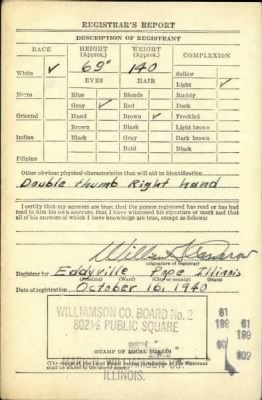 REGISTRAR'S REPORT
DESCRIPTION OF REGISTRANT
RACE HEIGHT (Approx.) WEIGHT (Approx.) COMPLEXION
White ✓ 69" 140 Sallow
EYES HAIR Light ✓
Negro Blue Blonde Ruddy
Gray ✓ Red Dark
Oriental Hazel Brown ✓ Freckled
Brown Black Light brown
Indian Black Gray Dark brown
Bald Black
Filipino
Other obvious physical characteristics that will aid in identification
Double thumb Right hand
I certify that my answers are true; that the person registered has read or has had
read to him his own answers; that I have witnessed his signature or mark and that
all of his answers of which I have knowledge are true, except as follows:
(Signature of registrar)
Registrar for Eddyville Pope Illinois
(Precinct) (Ward) (City or county) (State)
Date of registration October 16, 1940
WILLIAMSON CO. BOARD No. 2
PUBLIC SQUARE
WILLIAMSON CO.
ILLINOIS.
STAMP OF LOCAL BOARD
61 61
199 199